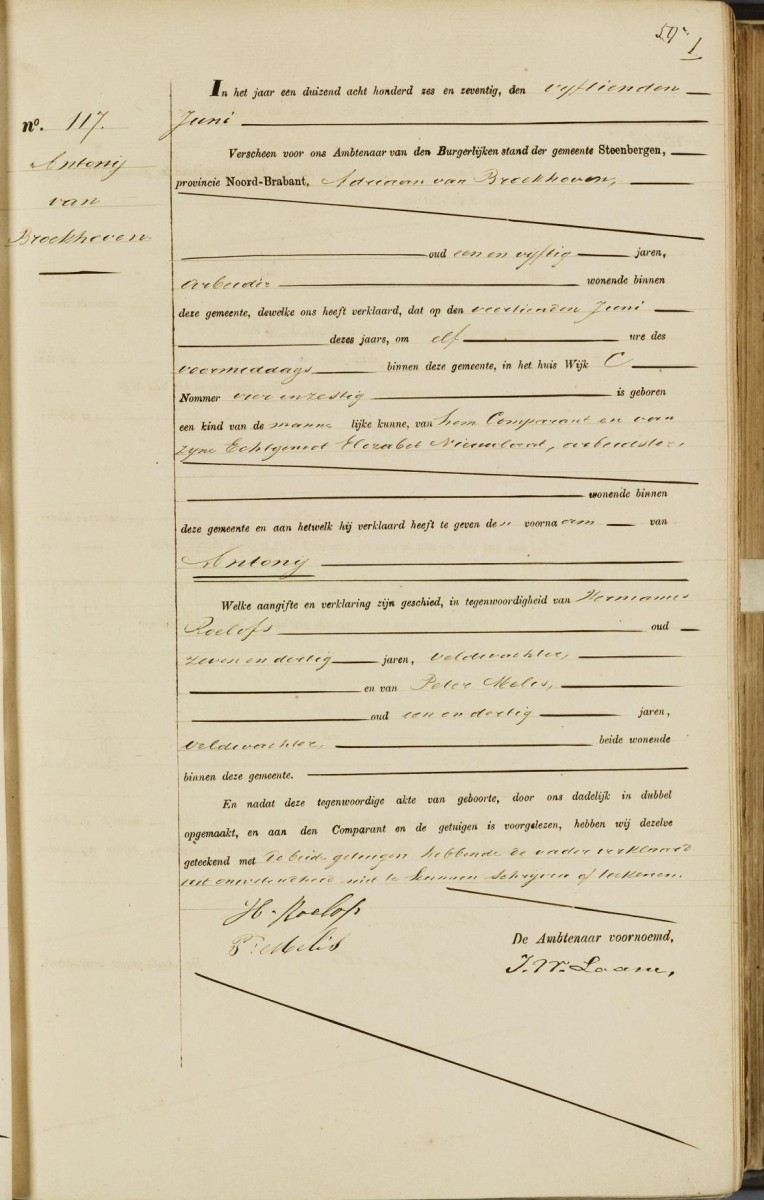 1
nº. 117.
Antonij
van
Broekhoven
In het jaar een duizend acht honderd zes en zeventig, den vyftienden
Juni
Verscheen voor ons Ambtenaar van den Burgerlijken stand der gemeente Steenbergen,
provincie Noord-Brabant, Adriaan van Broekhoven,
oud een en vyftig jaren,
arbeider wonende binnen
deze gemeente, dewelke ons heeft verklaard, dat op den veertienden Juni
dezes jaars, om elf ure des
voormiddags binnen deze gemeente, in het huis Wijk C
Nommer vier en zestig is geboren
een kind van de manne lijke kunne, van hem Comparant en van
zyne Echtgenoot Elizabet Nieuwlaat, arbeidster,
wonende binnen
deze gemeente en aan hetwelk hij verklaard heeft te geven de voorna am van
Antonij
Welke aangifte en verklaring zijn geschied, in tegenwoordigheid van Hermanus
Roelofs oud
zeven en dertig jaren, veldwachter,
en van Peter Melis,
oud een en dertig jaren,
veldwachter, beide wonende
binnen deze gemeente.
En nadat deze tegenwoordige akte van geboorte, door ons dadelijk in dubbel
opgemaakt, en aan den Comparant en de getuigen is voorgelezen, hebben wij dezelve
geteekend met de beide getuigen hebbende de vader verklaard
uit onwetendheid niet te kunnen schrijven of teekenen.
H. Roelofs
P. Melis
De Ambtenaar voornoemd,
J. W. Laane,